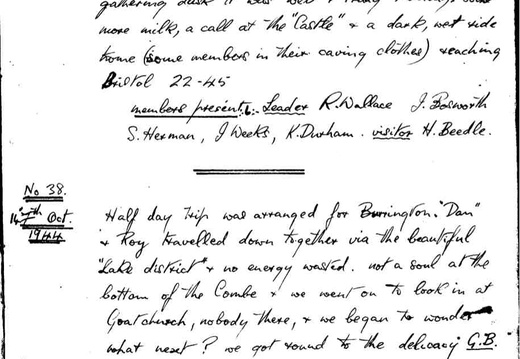 gathering dusk it was wet &
more milk, a call at the "Castle" & a dark, wet ride
home (some members in their caving clothes) reaching
Bristol 22-45
members present:- Leader R. Wallace J. Bosworth
S. Herman, J Weeks, K. Durham. visitor H. Beedle.
No 38.
14th Oct.
1944
Half day trip was arranged for Burrington. "Dan"
& Roy travelled down together via the beautiful
"Lake district" & no energy wasted. not a soul at the
bottom of the Combe & we went on to look in at
Goatchurch, nobody there, & we began to wonder
what next? we got round to the delicacy G.B.